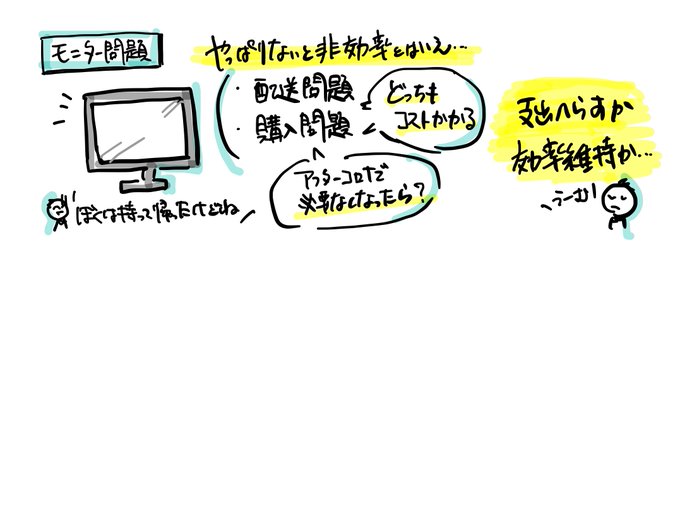 モニター問題
やっぱりないと非効率とはいえ…
・配送問題
・購入問題
どっちも
コストかかる
アフターコロナで
必要なくなったら？
ぼくは持って帰ったけどね
支出へらすか
効率維持か…
うーむ